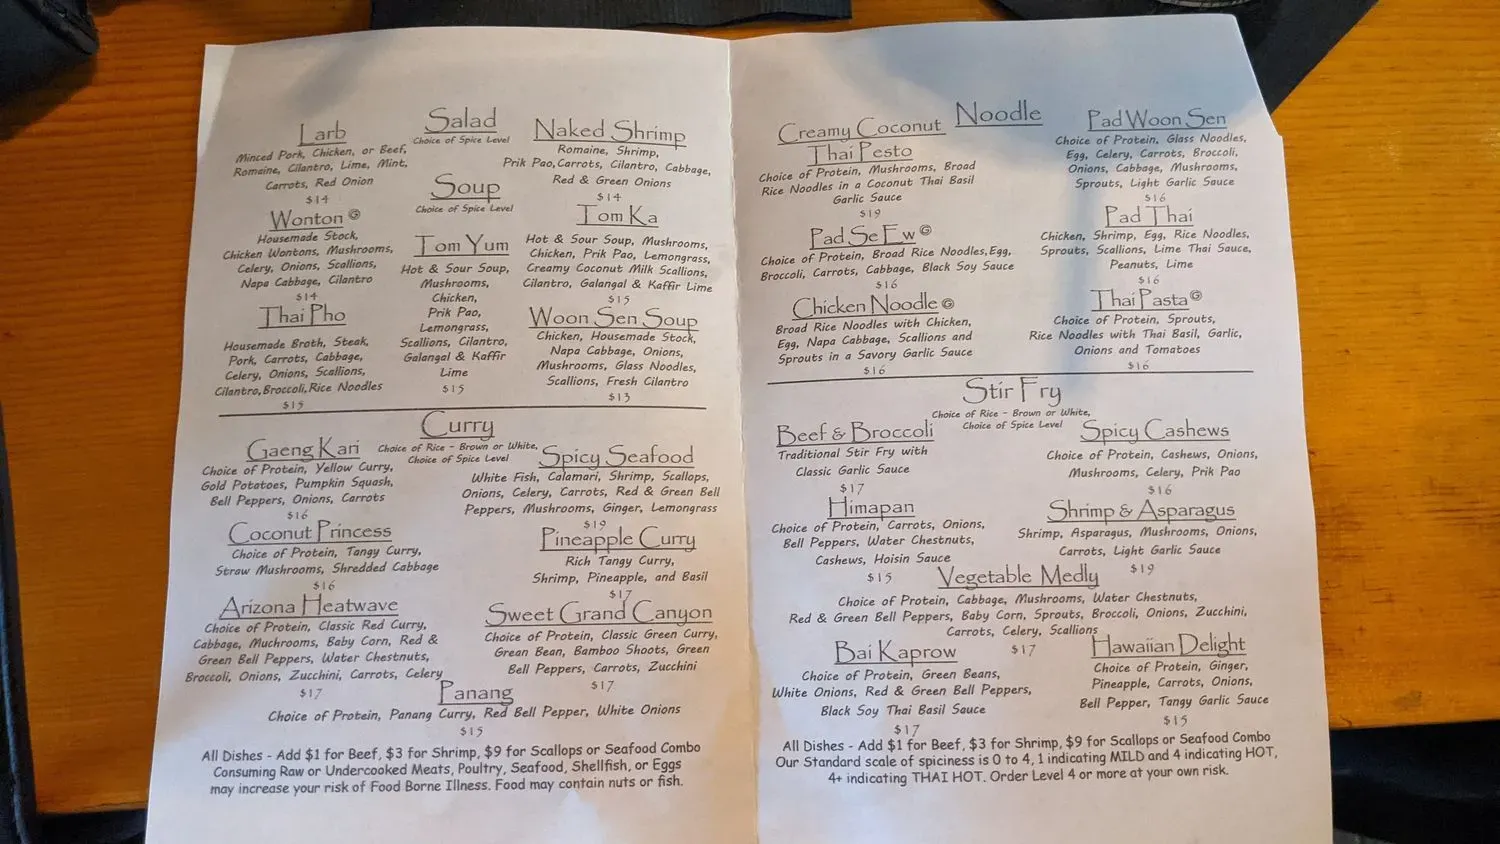 Salad
Choice of Spice Level
Larb
Minced Pork, Chicken, or Beef,
Romaine, Cilantro, Lime, Mint,
Carrots, Red Onion
$14
Naked Shrimp
Romaine, Shrimp,
Prik Pao, Carrots, Cilantro, Cabbage,
Red & Green Onions
$14
Soup
Choice of Spice Level
Wonton G
Housemade Stock,
Chicken Wontons, Mushrooms,
Celery, Onions, Scallions,
Napa Cabbage, Cilantro
$14
Tom Yum
Hot & Sour Soup,
Mushrooms,
Chicken,
Prik Pao,
Lemongrass,
Scallions, Cilantro,
Galangal & Kaffir
Lime
$15
Tom Ka
Hot & Sour Soup, Mushrooms,
Chicken, Prik Pao, Lemongrass,
Creamy Coconut Milk Scallions,
Cilantro, Galangal & Kaffir Lime
$15
Thai Pho
Housemade Broth, Steak,
Pork, Carrots, Cabbage,
Celery, Onions, Scallions,
Cilantro, Broccoli, Rice Noodles
$15
Woon Sen Soup
Chicken, Housemade Stock,
Napa Cabbage, Onions,
Mushrooms, Glass Noodles,
Scallions, Fresh Cilantro
$13
Curry
Choice of Rice - Brown or White,
Choice of Spice Level
Gaeng Kari
Choice of Protein, Yellow Curry,
Gold Potatoes, Pumpkin Squash,
Bell Peppers, Onions, Carrots
$16
Spicy Seafood
White Fish, Calamari, Shrimp, Scallops,
Onions, Celery, Carrots, Red & Green Bell
Peppers, Mushrooms, Ginger, Lemongrass
$19
Coconut Princess
Choice of Protein, Tangy Curry,
Straw Mushrooms, Shredded Cabbage
$16
Pineapple Curry
Rich Tangy Curry,
Shrimp, Pineapple, and Basil
$17
Arizona Heatwave
Choice of Protein, Classic Red Curry,
Cabbage, Muchrooms, Baby Corn, Red &
Green Bell Peppers, Water Chestnuts,
Broccoli, Onions, Zucchini, Carrots, Celery
$17
Sweet Grand Canyon
Choice of Protein, Classic Green Curry,
Grean Bean, Bamboo Shoots, Green
Bell Peppers, Carrots, Zucchini
$17
Panang
Choice of Protein, Panang Curry, Red Bell Pepper, White Onions
$15
All Dishes - Add $1 for Beef, $3 for Shrimp, $9 for Scallops or Seafood Combo
Consuming Raw or Undercooked Meats, Poultry, Seafood, Shellfish, or Eggs
may increase your risk of Food Borne Illness. Food may contain nuts or fish.
Noodle
Creamy Coconut
Thai Pesto
Choice of Protein, Mushrooms, Broad
Rice Noodles in a Coconut Thai Basil
Garlic Sauce
$19
Pad Woon Sen
Choice of Protein, Glass Noodles,
Egg, Celery, Carrots, Broccoli,
Onions, Cabbage, Mushrooms,
Sprouts, Light Garlic Sauce
$16
Pad Se Ew G
Choice of Protein, Broad Rice Noodles, Egg,
Broccoli, Carrots, Cabbage, Black Soy Sauce
$16
Pad Thai
Chicken, Shrimp, Egg, Rice Noodles,
Sprouts, Scallions, Lime Thai Sauce,
Peanuts, Lime
$16
Chicken Noodle G
Broad Rice Noodles with Chicken,
Egg, Napa Cabbage, Scallions and
Sprouts in a Savory Garlic Sauce
$16
Thai Pasta G
Choice of Protein, Sprouts,
Rice Noodles with Thai Basil, Garlic,
Onions and Tomatoes
$16
Stir Fry
Choice of Rice - Brown or White,
Choice of Spice Level
Beef & Broccoli
Traditional Stir Fry with
Classic Garlic Sauce
$17
Spicy Cashews
Choice of Protein, Cashews, Onions,
Mushrooms, Celery, Prik Pao
$16
Himapan
Choice of Protein, Carrots, Onions,
Bell Peppers, Water Chestnuts,
Cashews, Hoisin Sauce
$15
Shrimp & Asparagus
Shrimp, Asparagus, Mushrooms, Onions,
Carrots, Light Garlic Sauce
$19
Vegetable Medly
Choice of Protein, Cabbage, Mushrooms, Water Chestnuts,
Red & Green Bell Peppers, Baby Corn, Sprouts, Broccoli, Onions, Zucchini,
Carrots, Celery, Scallions
$17
Bai Kaprow
Choice of Protein, Green Beans,
White Onions, Red & Green Bell Peppers,
Black Soy Thai Basil Sauce
$17
Hawaiian Delight
Choice of Protein, Ginger,
Pineapple, Carrots, Onions,
Bell Pepper, Tangy Garlic Sauce
$15
All Dishes - Add $1 for Beef, $3 for Shrimp, $9 for Scallops or Seafood Combo
Our Standard scale of spiciness is 0 to 4, 1 indicating MILD and 4 indicating HOT,
4+ indicating THAI HOT. Order Level 4 or more at your own risk.